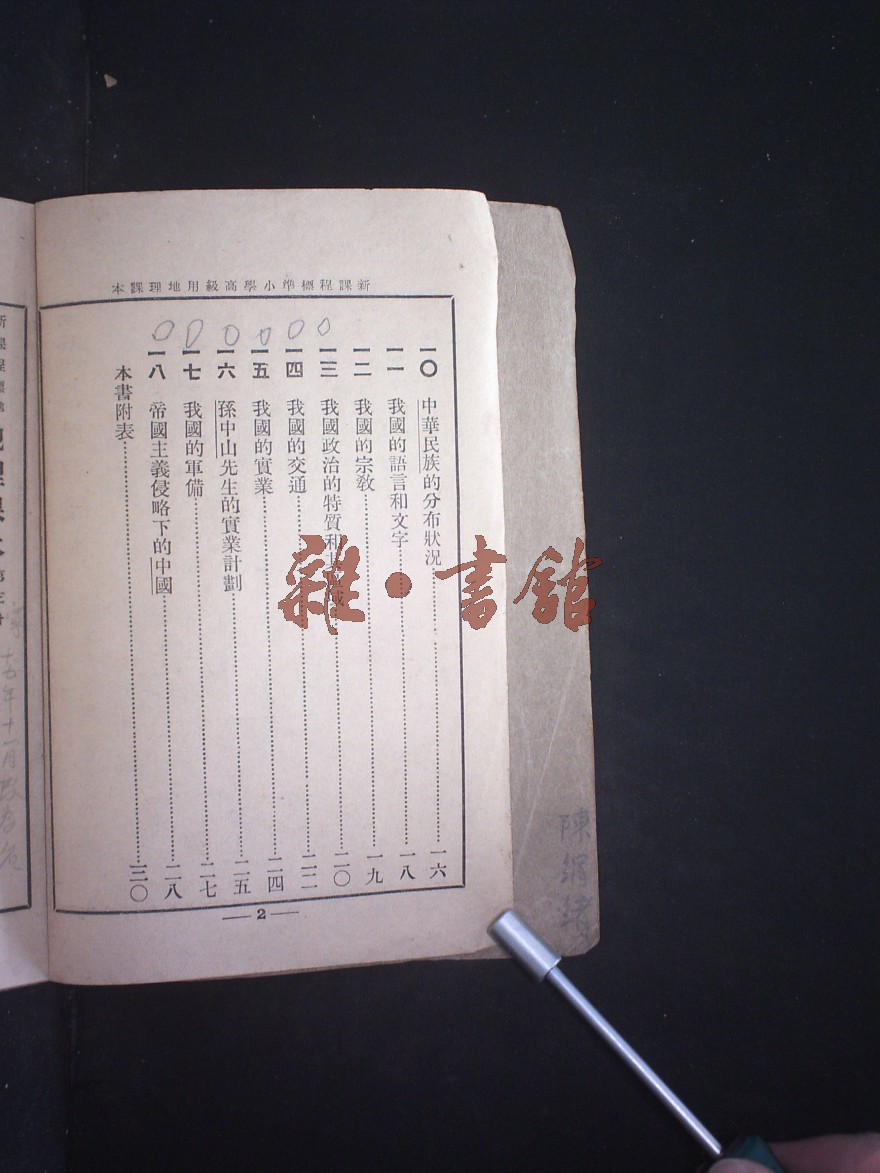 新課程標準小學高級用地理課本
一〇 中華民族的分布狀況 一六
一一 我國的語言和文字 一八
一二 我國的宗教 一九
一三 我國政治的特質和其區域 二〇
一四 我國的交通 二二
一五 我國的實業 二四
一六 孫中山先生的實業計劃 二五
一七 我國的軍備 二七
一八 帝國主義侵略下的中國 二八
本書附表 三〇
2
雜·書館